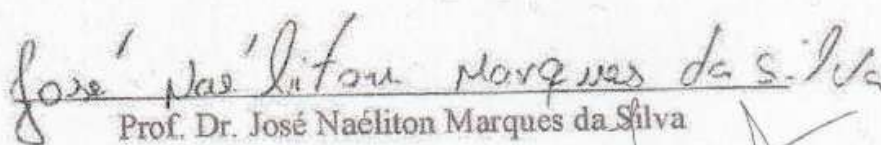 José Naéliton Marques da Silva
Prof. Dr. José Naéliton Marques da Silva